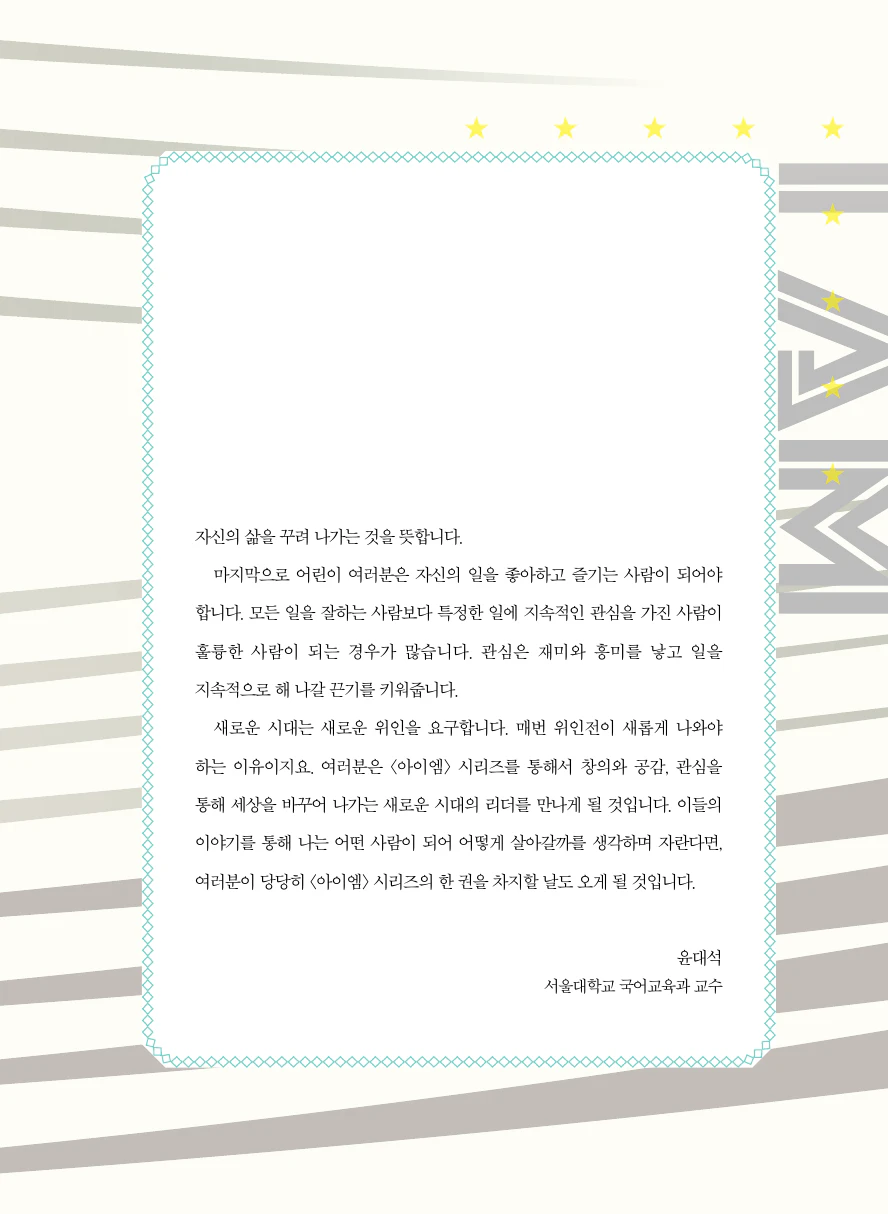 I AM
자신의 삶을 꾸려 나가는 것을 뜻합니다.
마지막으로 어린이 여러분은 자신의 일을 좋아하고 즐기는 사람이 되어야
합니다. 모든 일을 잘하는 사람보다 특정한 일에 지속적인 관심을 가진 사람이
훌륭한 사람이 되는 경우가 많습니다. 관심은 재미와 흥미를 낳고 일을
지속적으로 해 나갈 끈기를 키워줍니다.
새로운 시대는 새로운 위인을 요구합니다. 매번 위인전이 새롭게 나와야
하는 이유이지요. 여러분은 〈아이엠〉 시리즈를 통해서 창의와 공감, 관심을
통해 세상을 바꾸어 나가는 새로운 시대의 리더를 만나게 될 것입니다. 이들의
이야기를 통해 나는 어떤 사람이 되어 어떻게 살아갈까를 생각하며 자란다면,
여러분이 당당히 〈아이엠〉 시리즈의 한 권을 차지할 날도 오게 될 것입니다.
윤대석
서울대학교 국어교육과 교수